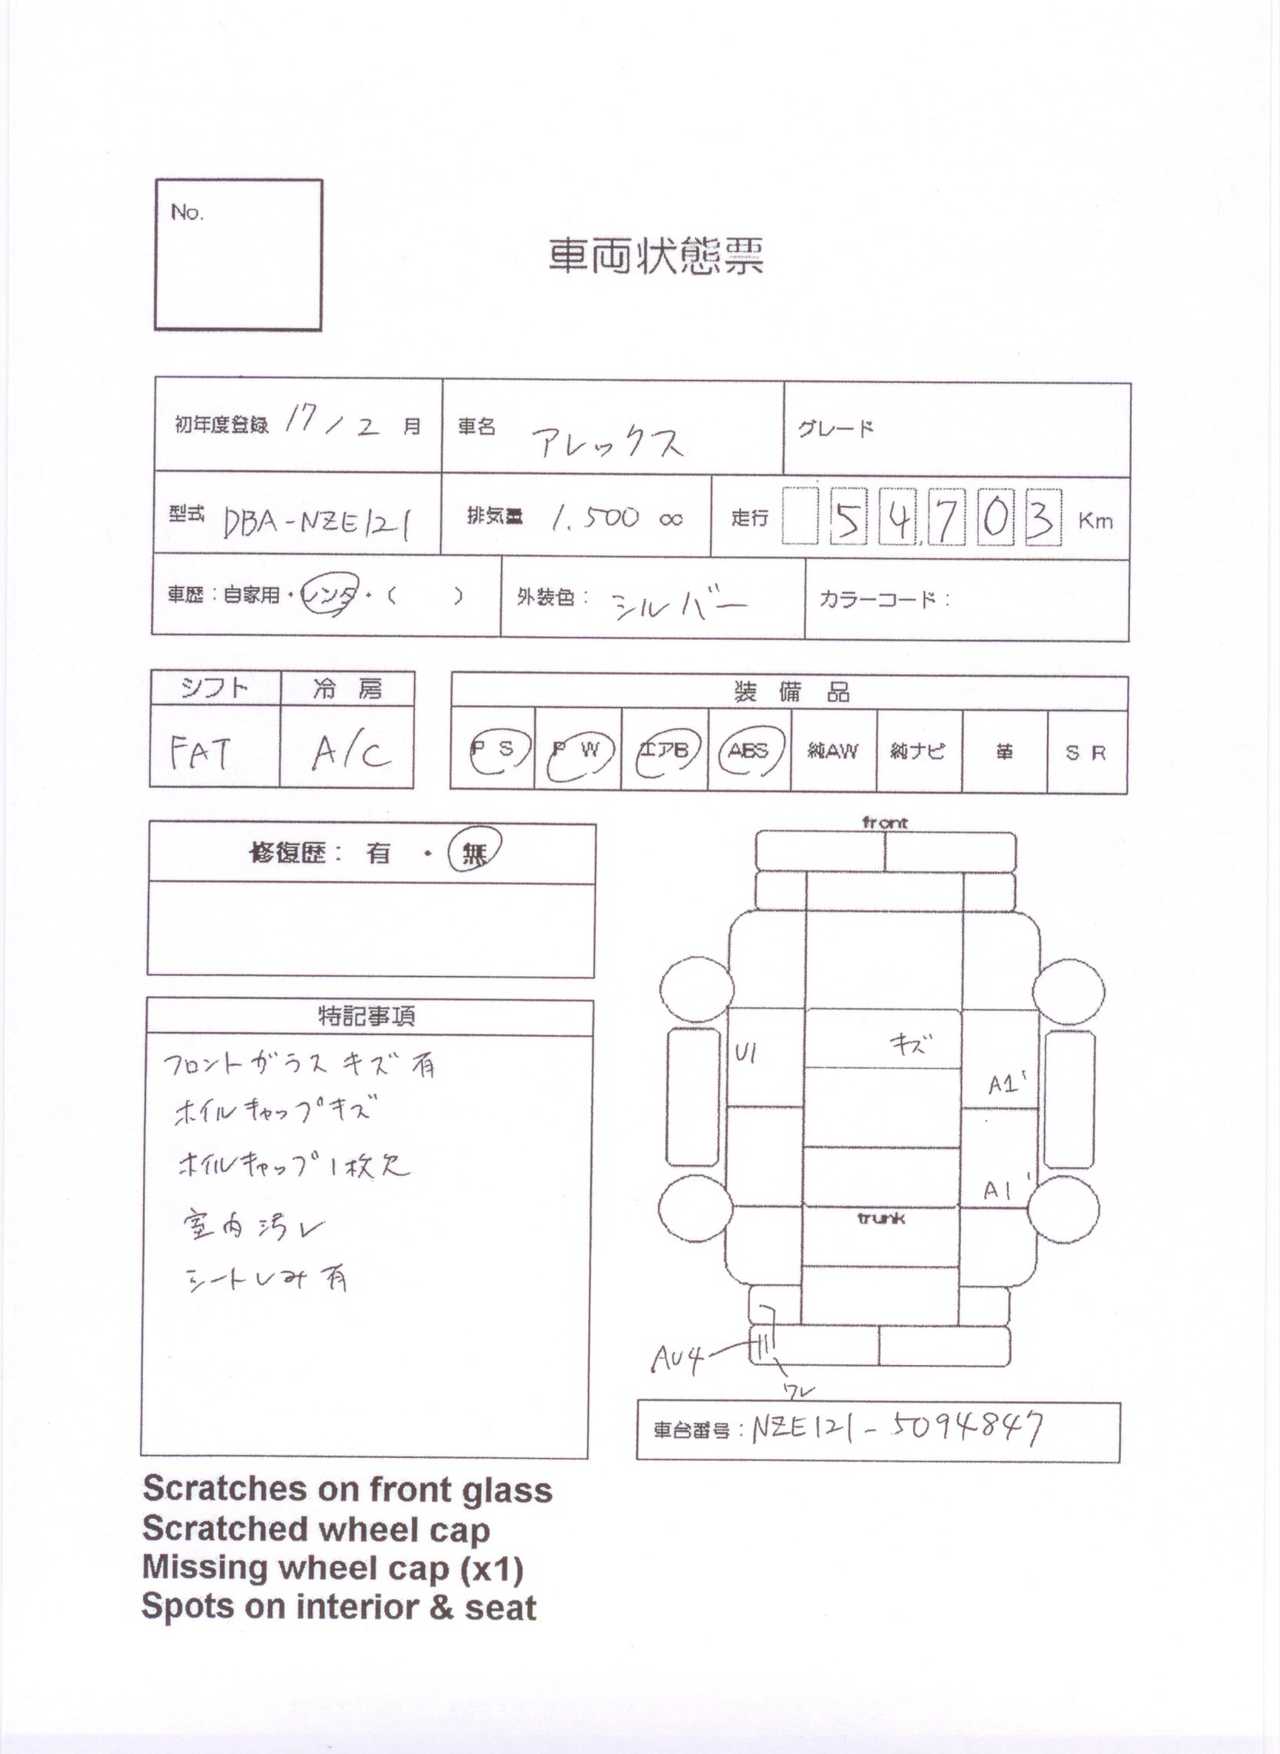 No.
車両状態票
初年度登録 17/2 月 車名 アレックス グレード
型式 DBA-NZE121 排気量 1.500 cc 走行 54,703 Km
車歴：自家用・レンタ・（ ） 外装色： シルバー カラーコード：
シフト 冷房 装備品
FAT A/C PS PW エアB ABS 純AW 純ナビ 革 SR
修復歴： 有 ・ 無
front
特記事項
フロントガラス キズ 有
ホイルキャップキズ
ホイルキャップ 1枚欠
室内汚レ
シートしみ 有
U1 キズ
A1'
A1'
trunk
AU4
ワレ
車台番号：NZE121-5094847
Scratches on front glass
Scratched wheel cap
Missing wheel cap (x1)
Spots on interior & seat